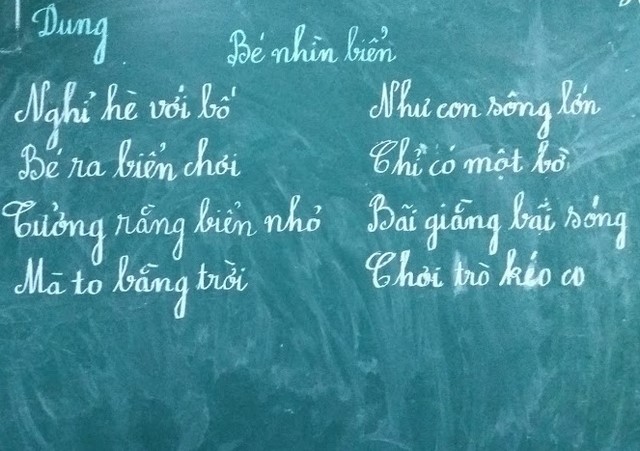 Dung
Bé nhìn biển
Nghỉ hè với bố
Bé ra biển chơi
Tưởng rằng biển nhỏ
Mà to bằng trời
Như con sông lớn
Chỉ có một bờ
Bãi giằng bãi sóng
Chơi trò kéo co